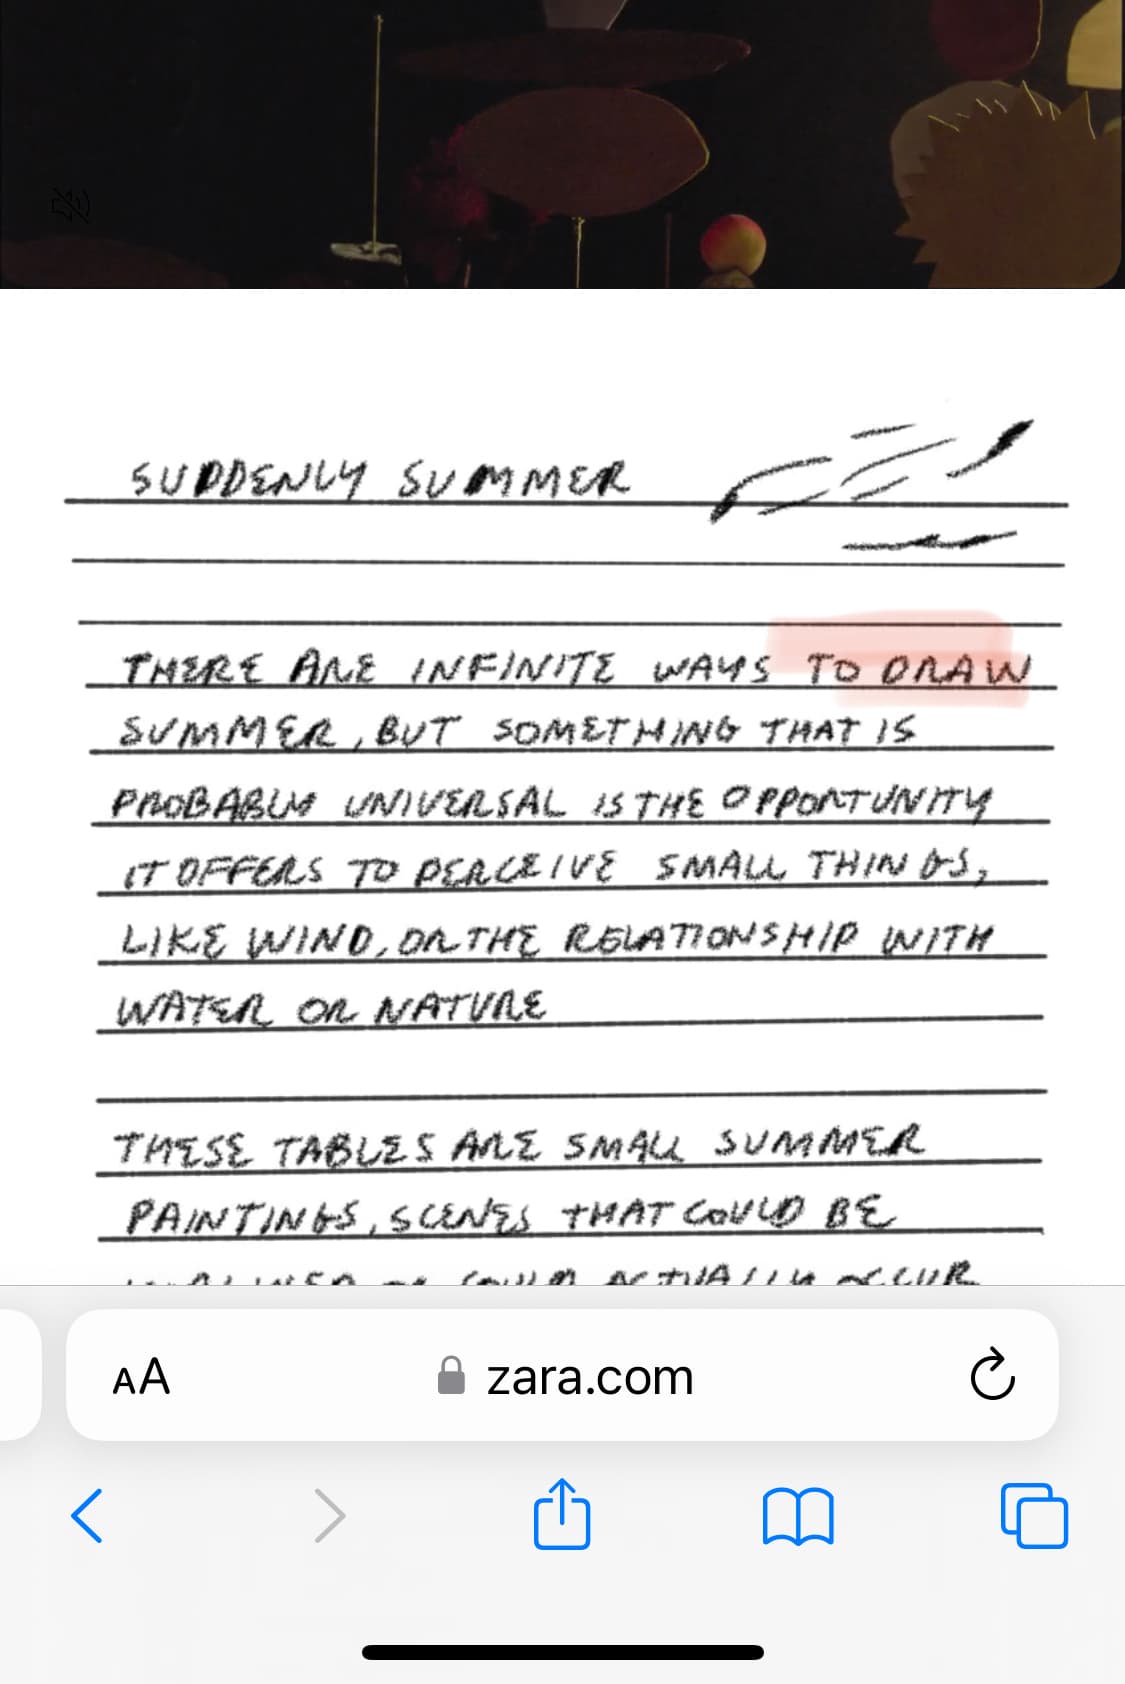 SUDDENLY SUMMER
THERE ARE INFINITE WAYS TO DRAW
SUMMER, BUT SOMETHING THAT IS
PROBABLY UNIVERSAL IS THE OPPORTUNITY
IT OFFERS TO PERCEIVE SMALL THINGS,
LIKE WIND, OR THE RELATIONSHIP WITH
WATER OR NATURE
THESE TABLES ARE SMALL SUMMER
PAINTINGS, SCENES THAT COULD BE
COULD ACTUALLY OCCUR
AA zara.com